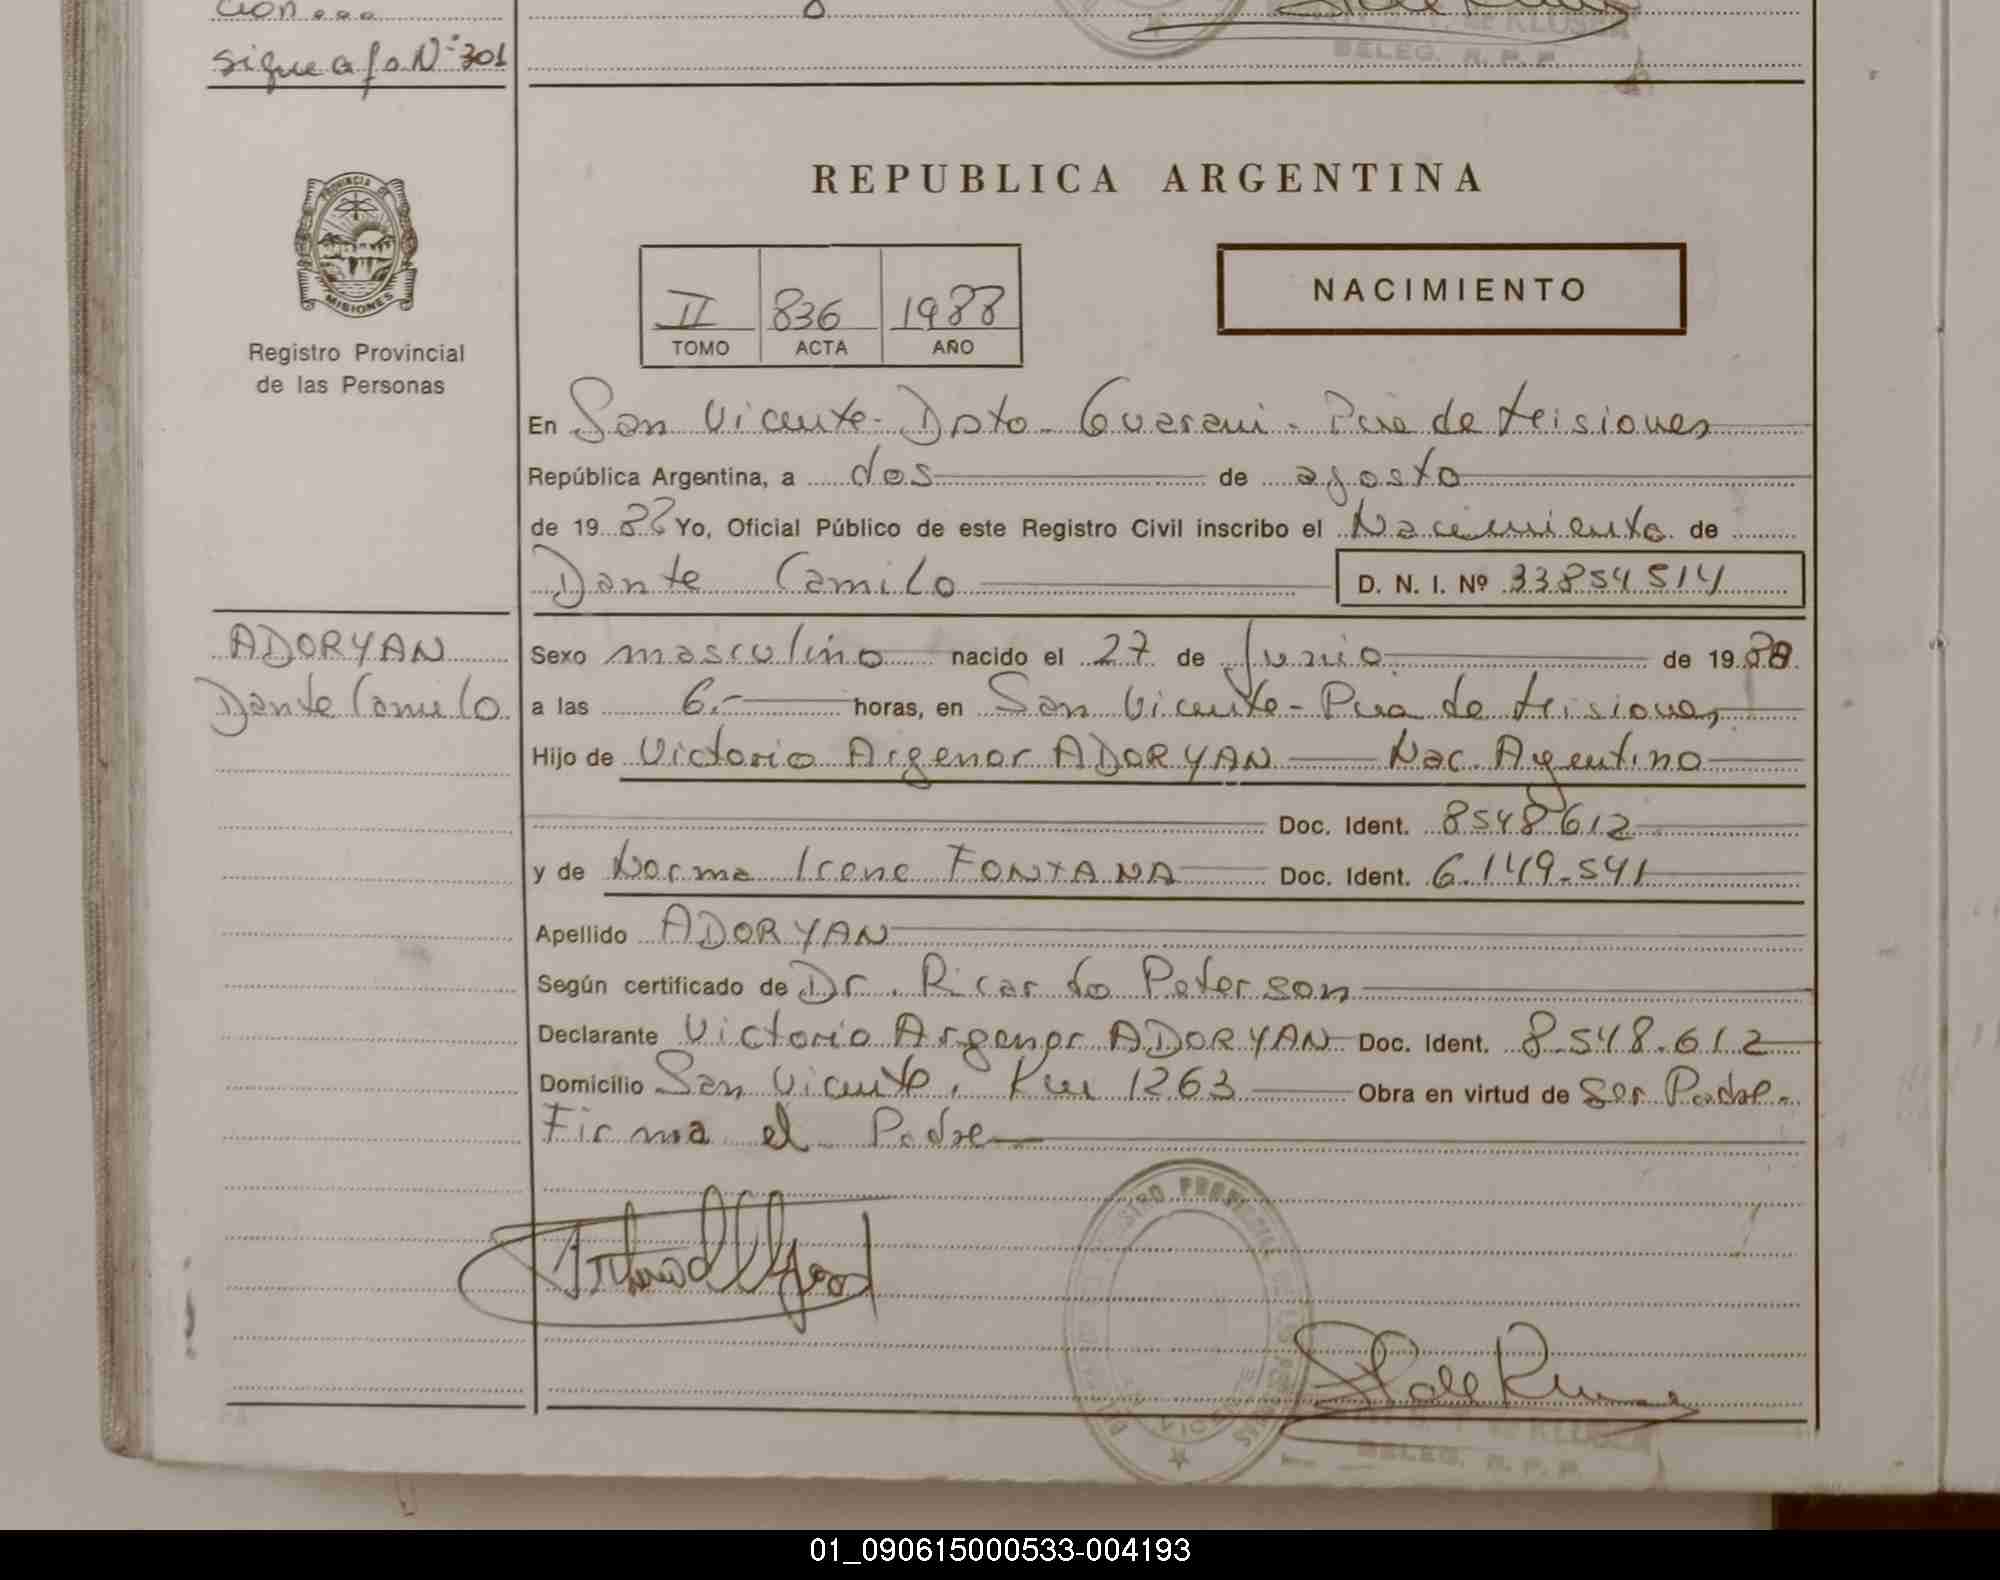 ción...
sigue a fo. Nº 301
BELEG. R. P. P.
PROVINCIA DE
MISIONES
Registro Provincial
de las Personas
REPUBLICA ARGENTINA
II 836 1988
TOMO ACTA AÑO
NACIMIENTO
En San Vicente - Dpto. Guarani - Pcia de Misiones
República Argentina, a dos de agosto
de 1988 Yo, Oficial Público de este Registro Civil inscribo el Nacimiento de
Dante Camilo D. N. I. Nº 33854514
ADORYAN
Dante Camilo
Sexo masculino nacido el 27 de Junio de 1988
a las 6.- horas, en San Vicente - Pcia de Misiones
Hijo de Victorio Argenor ADORYAN Nac. Argentino
Doc. Ident. 8548612
y de Norma Irene FONTANA Doc. Ident. 6.149.541
Apellido ADORYAN
Según certificado de Dr. Ricardo Peterson
Declarante Victorio Argenor ADORYAN Doc. Ident. 8.548.612
Domicilio San Vicente. Km 1263 Obra en virtud de Ser Padre.
Firma el Padre
BELEG. R. P. P.
01_090615000533-004193